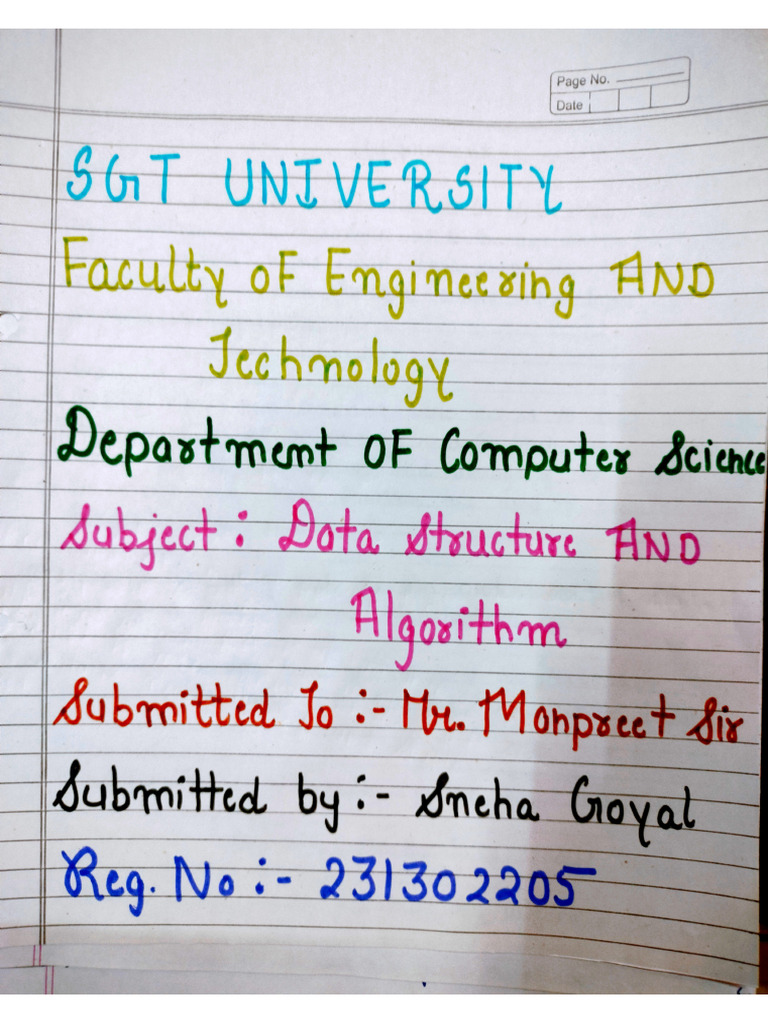 Page No.
Date
SGT UNIVERSITY
Faculty of Engineering AND
Technology
Department OF Computer Science
Subject: Data Structure AND
Algorithm
Submitted To :- Mr. Manpreet Sir
Submitted by :- Sneha Goyal
Reg. No :- 231302205